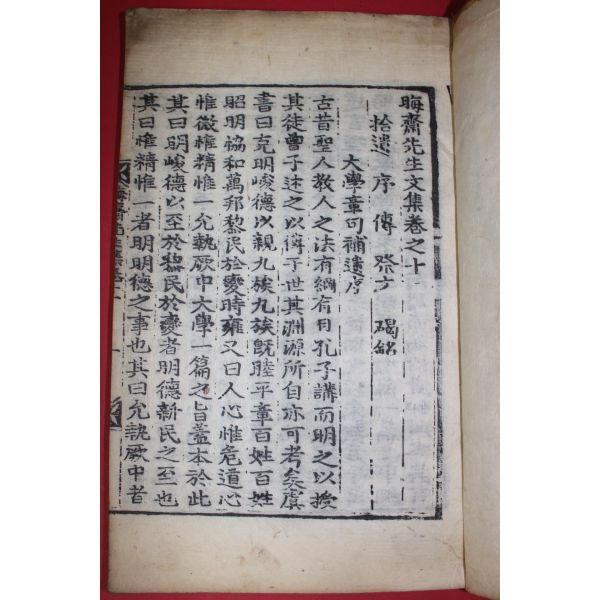 晦齋先生文集卷之十
拾遺 序 傳 祭文 碣銘
大學章句補遺序
古昔聖人教人之法有綱有目孔子講而明之以授
其徒曾子述之以傳于世其淵源所自亦可考矣虞
書曰克明峻德以親九族九族旣睦平章百姓百姓
昭明協和萬邦黎民於變時雍又曰人心惟危道心
惟微惟精惟一允執厥中大學一篇之旨蓋本於此
其曰明峻德以至於黎民於變者明德新民之至也
其曰惟精惟一者明明德之事也其曰允執厥中者